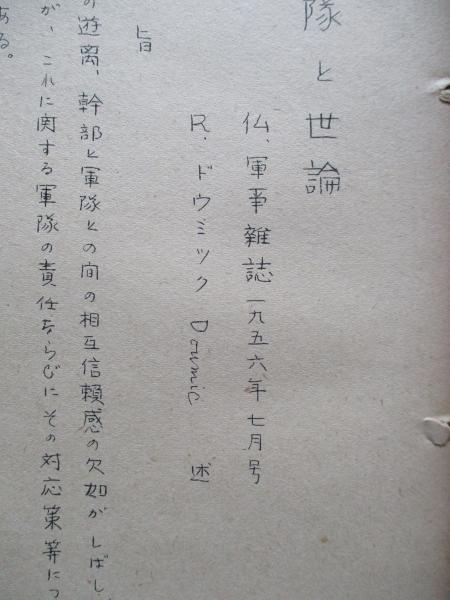 隊と世論
仏、軍事雑誌一九五六年七月号
R.ドウミック Doumic 述
旨
の遊离、幹部と軍隊との間の相互信頼感の欠如がしばし
が、これに関する軍隊の責任ならびにその対応策等につ
ある。